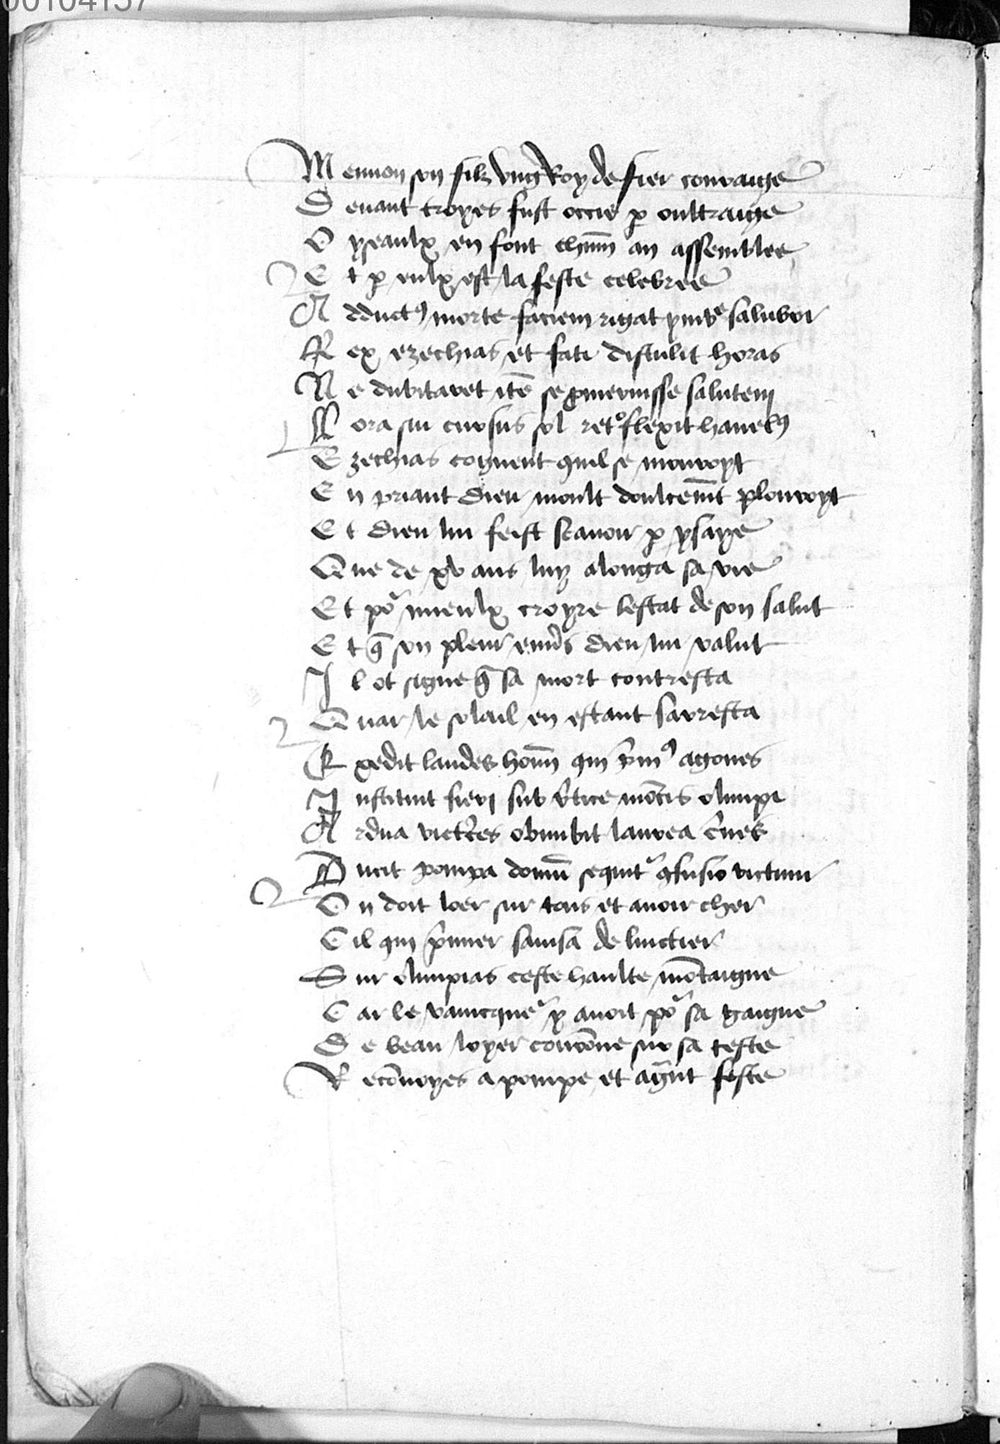 00104157
Mennon son filz ung Roy de fier couraige
Devant troyes fust occis p oultraige
Oyseaulx en font chun an assemblee
Et p eulx est la feste celebree
Adduct9 morte faciem rigat ymbre salubri
Rex ezechias et fati distulit horas
Ne dubitaret ite se pmeruisse salutem
Hora sui cursus sol retoflexit
Ezechias cognent quil se mouroyt
En priant dieu moult doulcemt plouroyt
Et dieu lui feist scavoir p ysaye
Que de xv ans luy alonga sa vie
Et po mieulx croyre lestat de son salut
Et q son pleur envs dieu lui valut
Il ot signe q sa mort contresta
Quar le soleil en estant sarresta
Expedit laudes hom qui pm9 agones
Instituit fieri sub vtice motis olimpi
Ardua victces obumbit laurea
Ducit pompa domu sequit gfusio victum
On doit loer sur tous et avoir cher
Cil qui pmier saussa de luictier
Sur olimpias ceste haulte motaigne
Car le vaincque p avoit po sa gaigne
De beau loyer courone sur sa teste
Reconvoyes a pompe et agnt feste